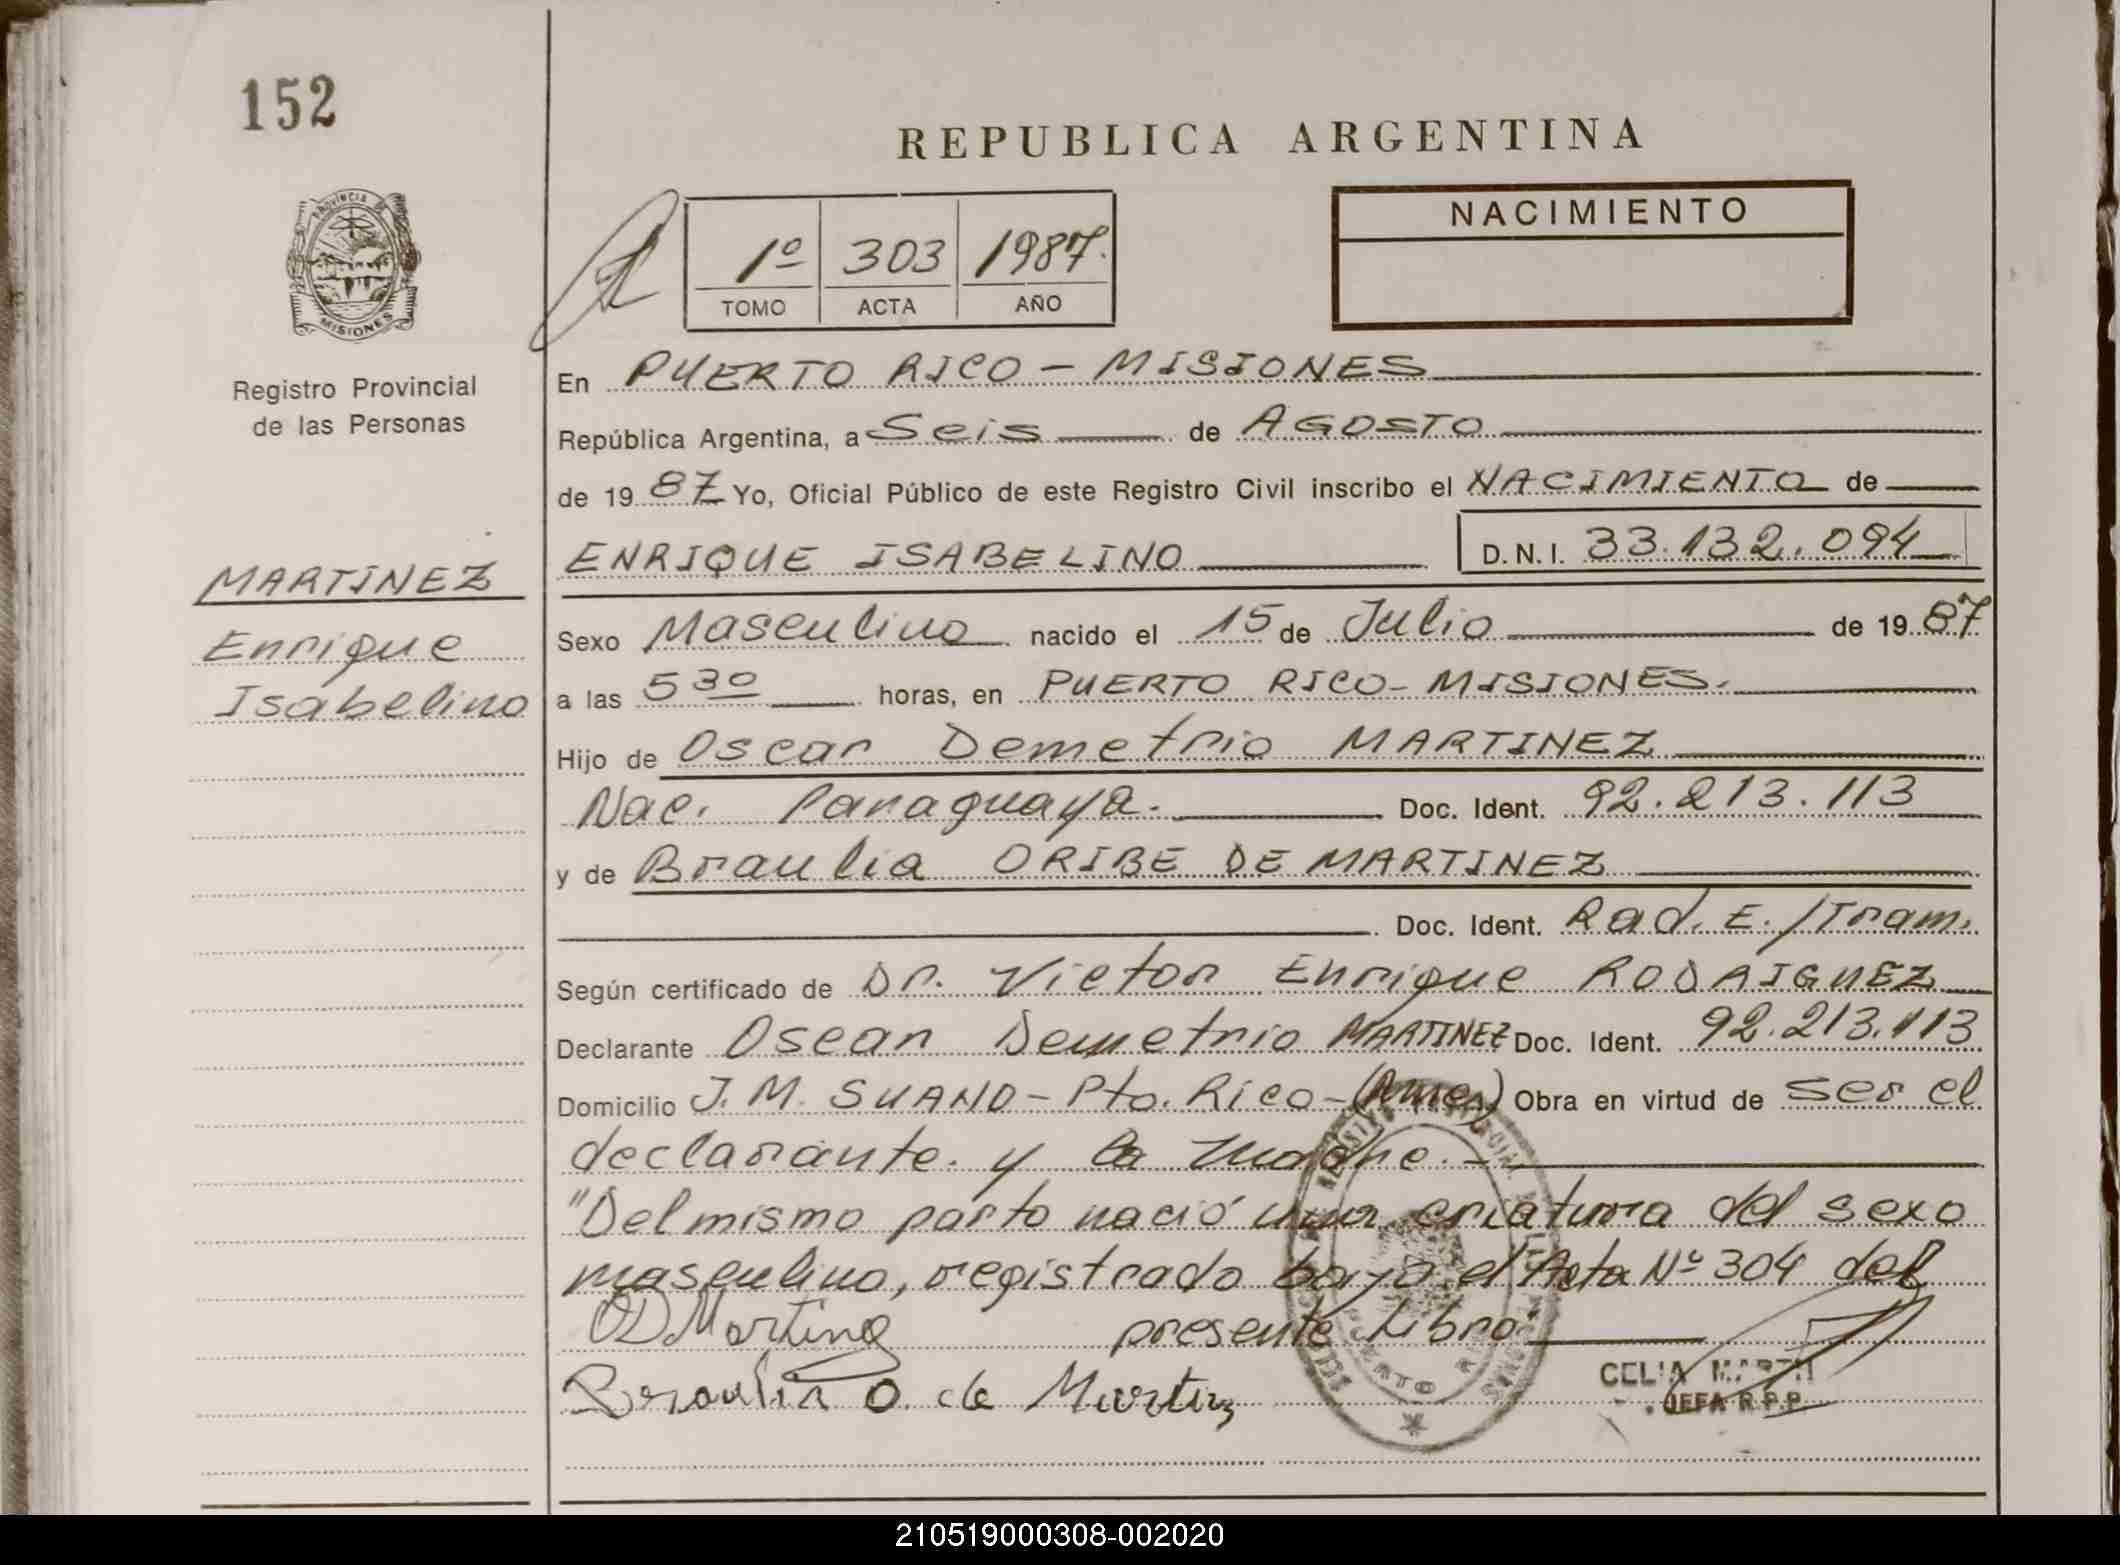 152
REPUBLICA ARGENTINA
PROVINCIA DE
MISIONES
Registro Provincial
de las Personas
1º 303 1987.
TOMO ACTA AÑO
NACIMIENTO
En PUERTO RICO - MISIONES
República Argentina, a Seis de AGOSTO
de 19 87 Yo, Oficial Público de este Registro Civil inscribo el NACIMIENTO de
ENRIQUE ISABELINO D.N.I. 33.132.094
MARTINEZ
Enrique
Isabelino
Sexo Masculino nacido el 15 de Julio de 19 87
a las 5 30 horas, en PUERTO RICO - MISIONES.
Hijo de Oscar Demetrio MARTINEZ
Nac. Paraguaya. Doc. Ident. 92.213.113
y de Braulia ORIBE DE MARTINEZ
Doc. Ident. Rad. E. / Tram.
Según certificado de Dr. Victor Enrique RODRIGUEZ
Declarante Oscar Demetrio MARTINEZ Doc. Ident. 92.213.113
Domicilio J. M. SUAND - Pto. Rico - Obra en virtud de ser el
declarante. y la madre. -
"Del mismo parto nació una criatura del sexo
masculino, registrado bajo el Acta Nº 304 del
presente Libro
OD Martinez
Braulia O. de Martinez
PUERTO
CELIA
JEFA R.P.P.
210519000308-002020